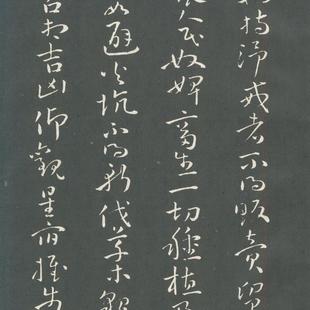 持淨戒者不得販賣貿
人民奴婢畜生一切種植
如避火坑不得斬伐草木墾
占相吉凶仰觀星宿推步